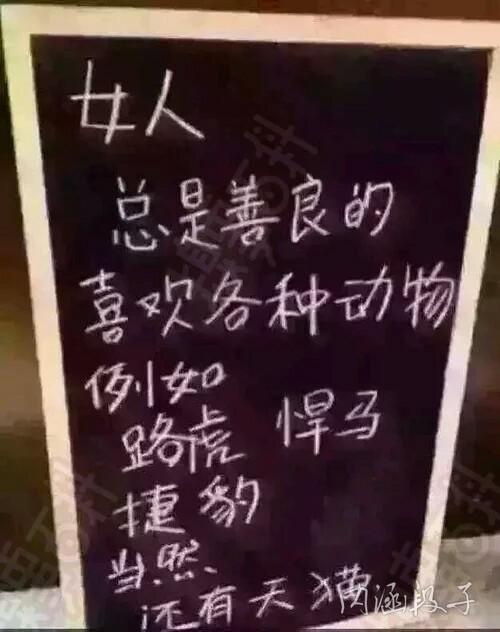 女人
总是善良的
喜欢各种动物
例如
路虎 悍马
捷豹
当然
还有天猫
内涵段子